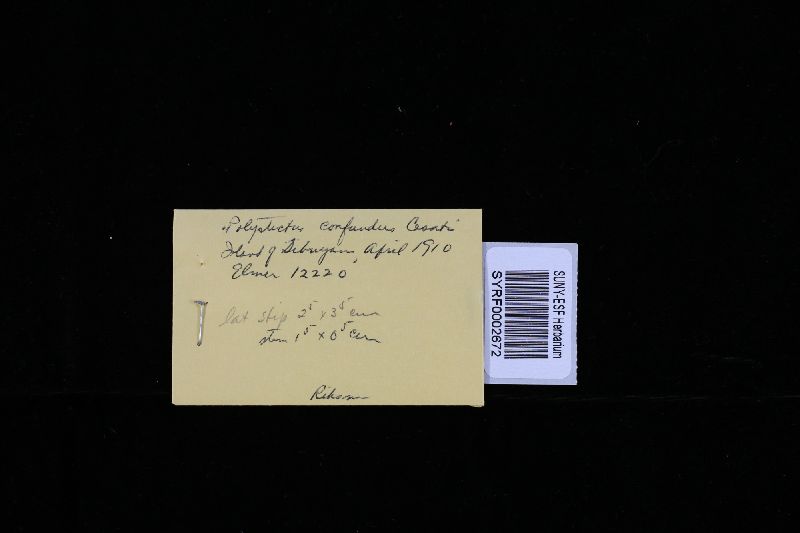 "Polystictus confundens Cesati"
Island of Sibuyan, April 1910
Elmer 12220
lat stip 2⁵ x 3⁵ cm
stem 1⁵ x 0⁵ cm
SUNY-ESF Herbarium
SYRF0002672